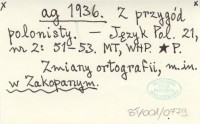 x x
ag 1936. Z przygód
polonisty. – Język Pol. 21,
nr 2: 51–53. MT, WHP. ★P.
Zmiany ortografii, m.in.
w Zakopanym.